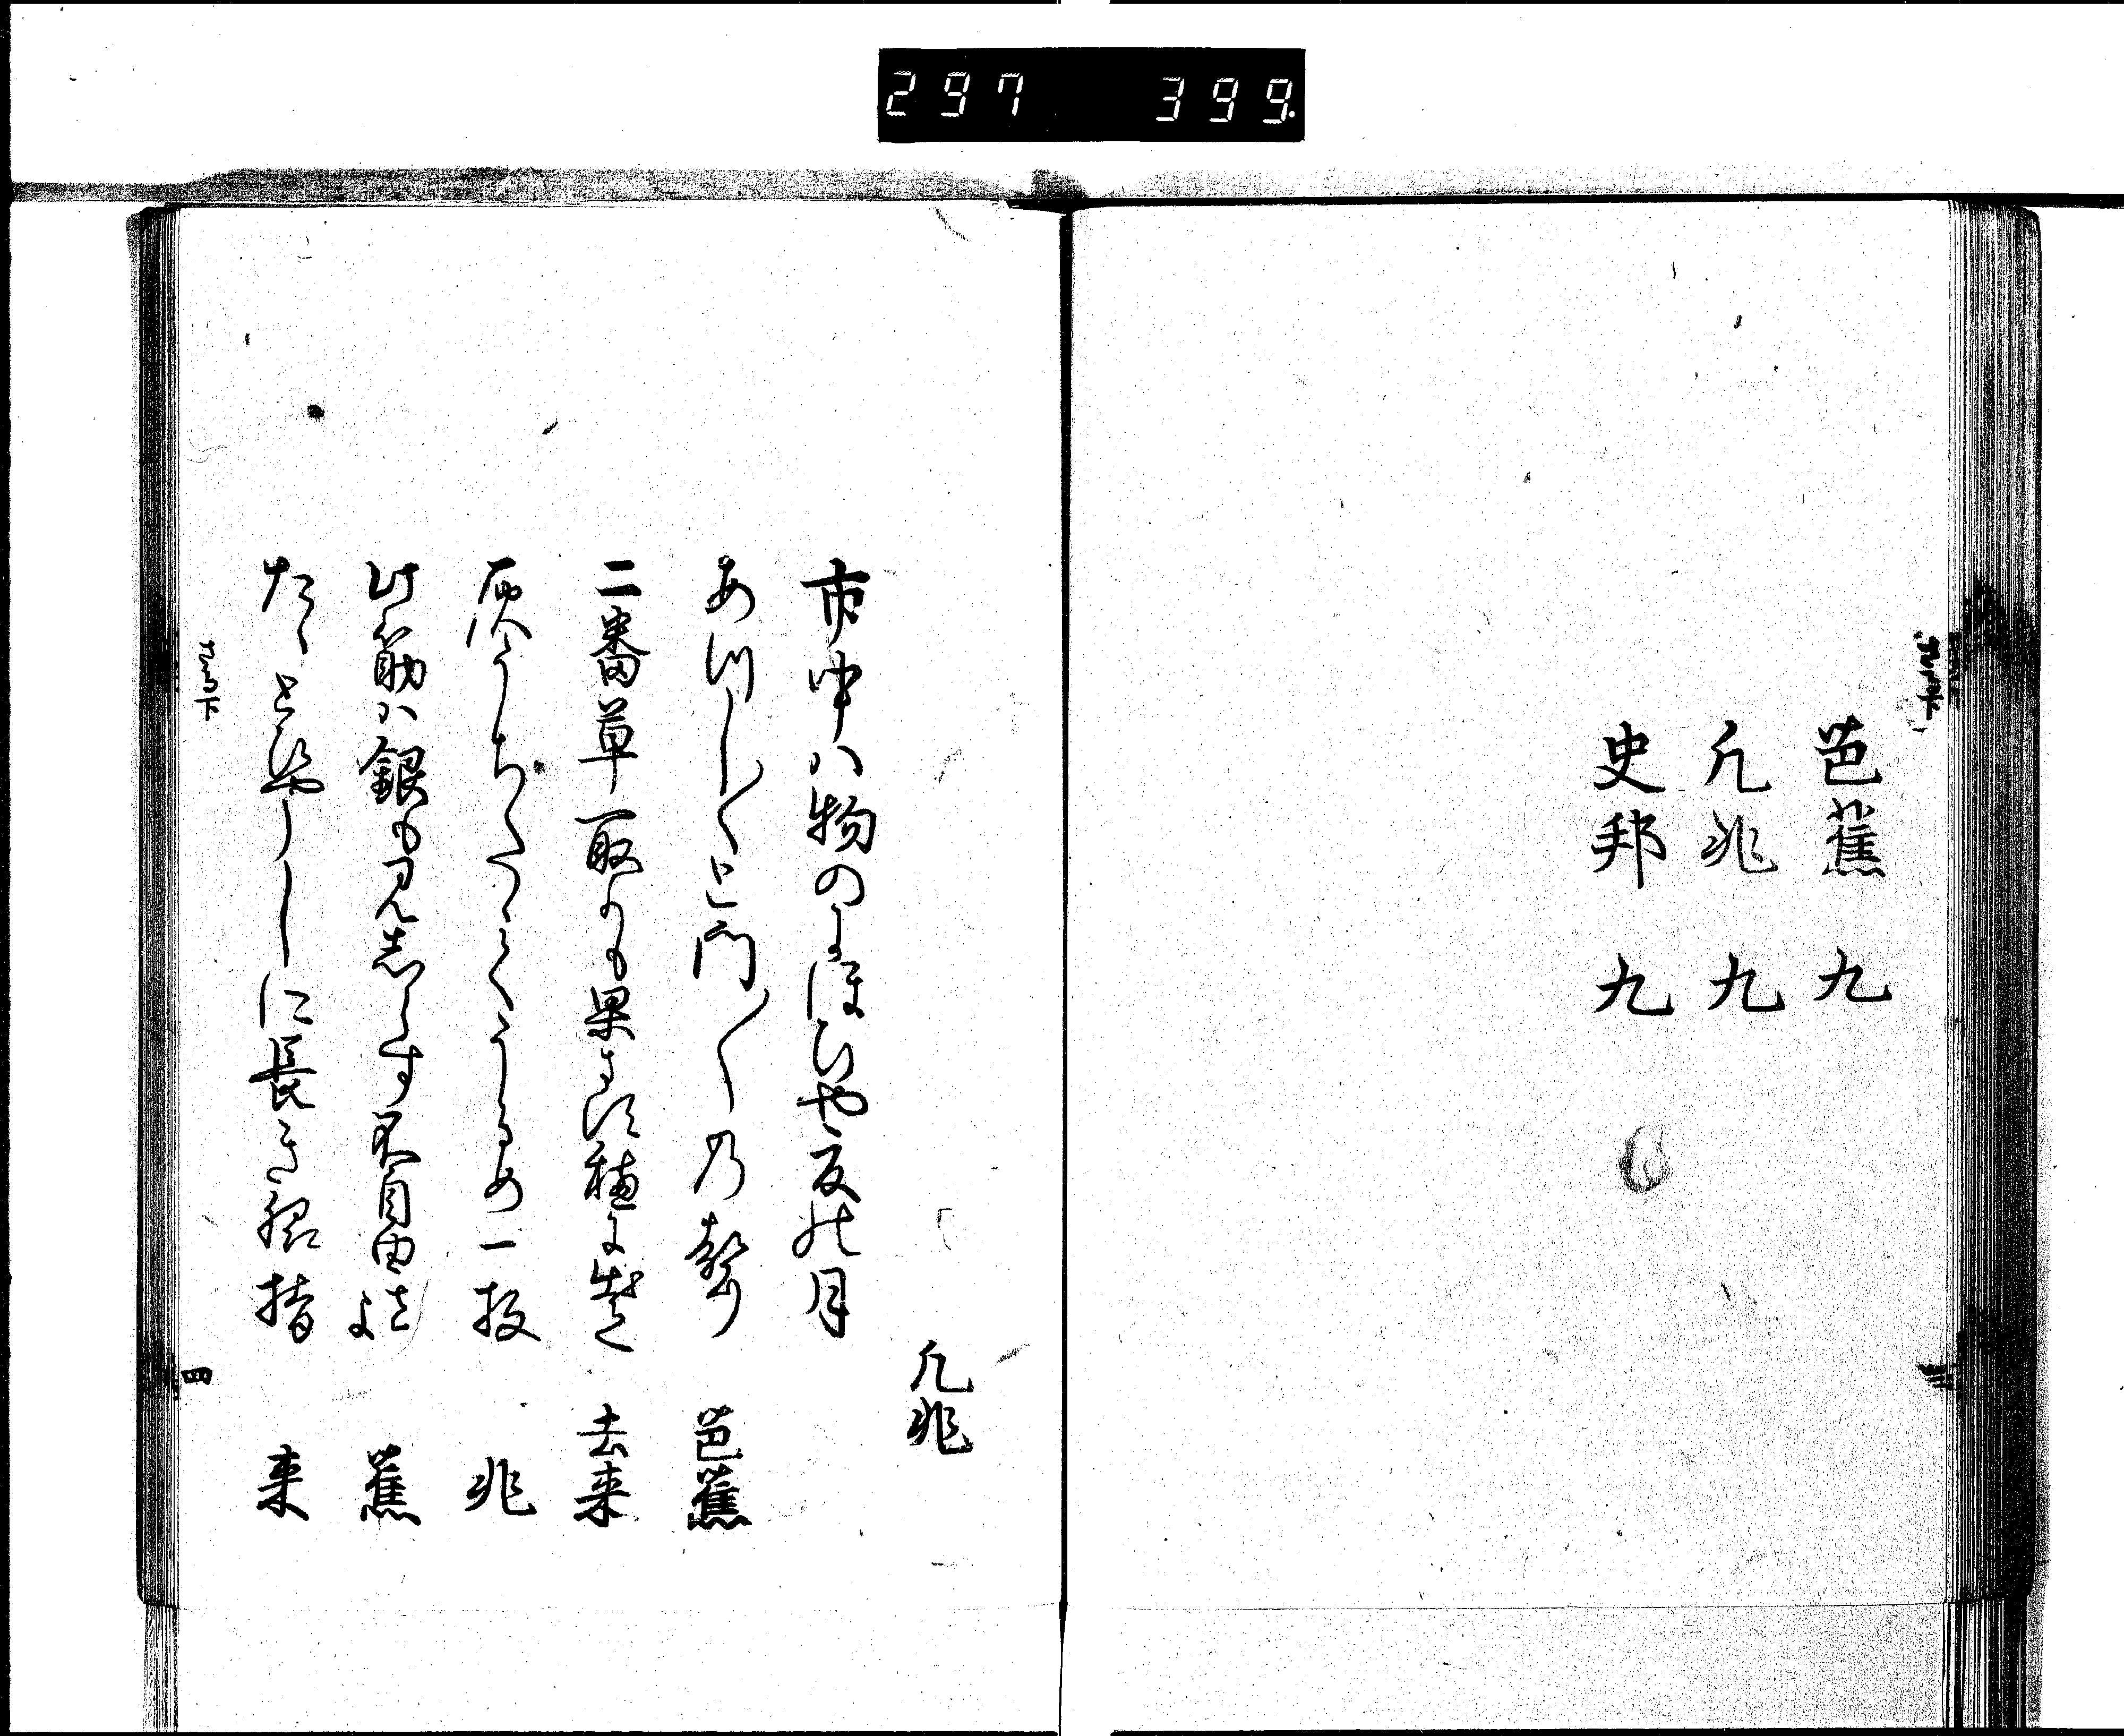 297 399
芭蕉 九
凡兆 九
史邦 九
凡兆
市中ハ物のにほひや夏の月
あつし〱と門〱の声 芭蕉
二番草取りも果さず穂に出て 去来
灰うちたゝくうるめ一枚 兆
此筋ハ銀も見しらず不自由さよ 蕉
たゞとひやうしに長き脇指 来
四